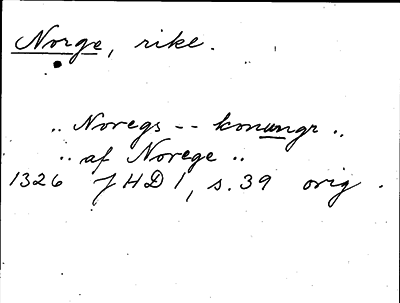 Norge, rike.
.. Noregs -- konungr ..
.. af Norege ..
1326 JHD 1, s. 39 orig.